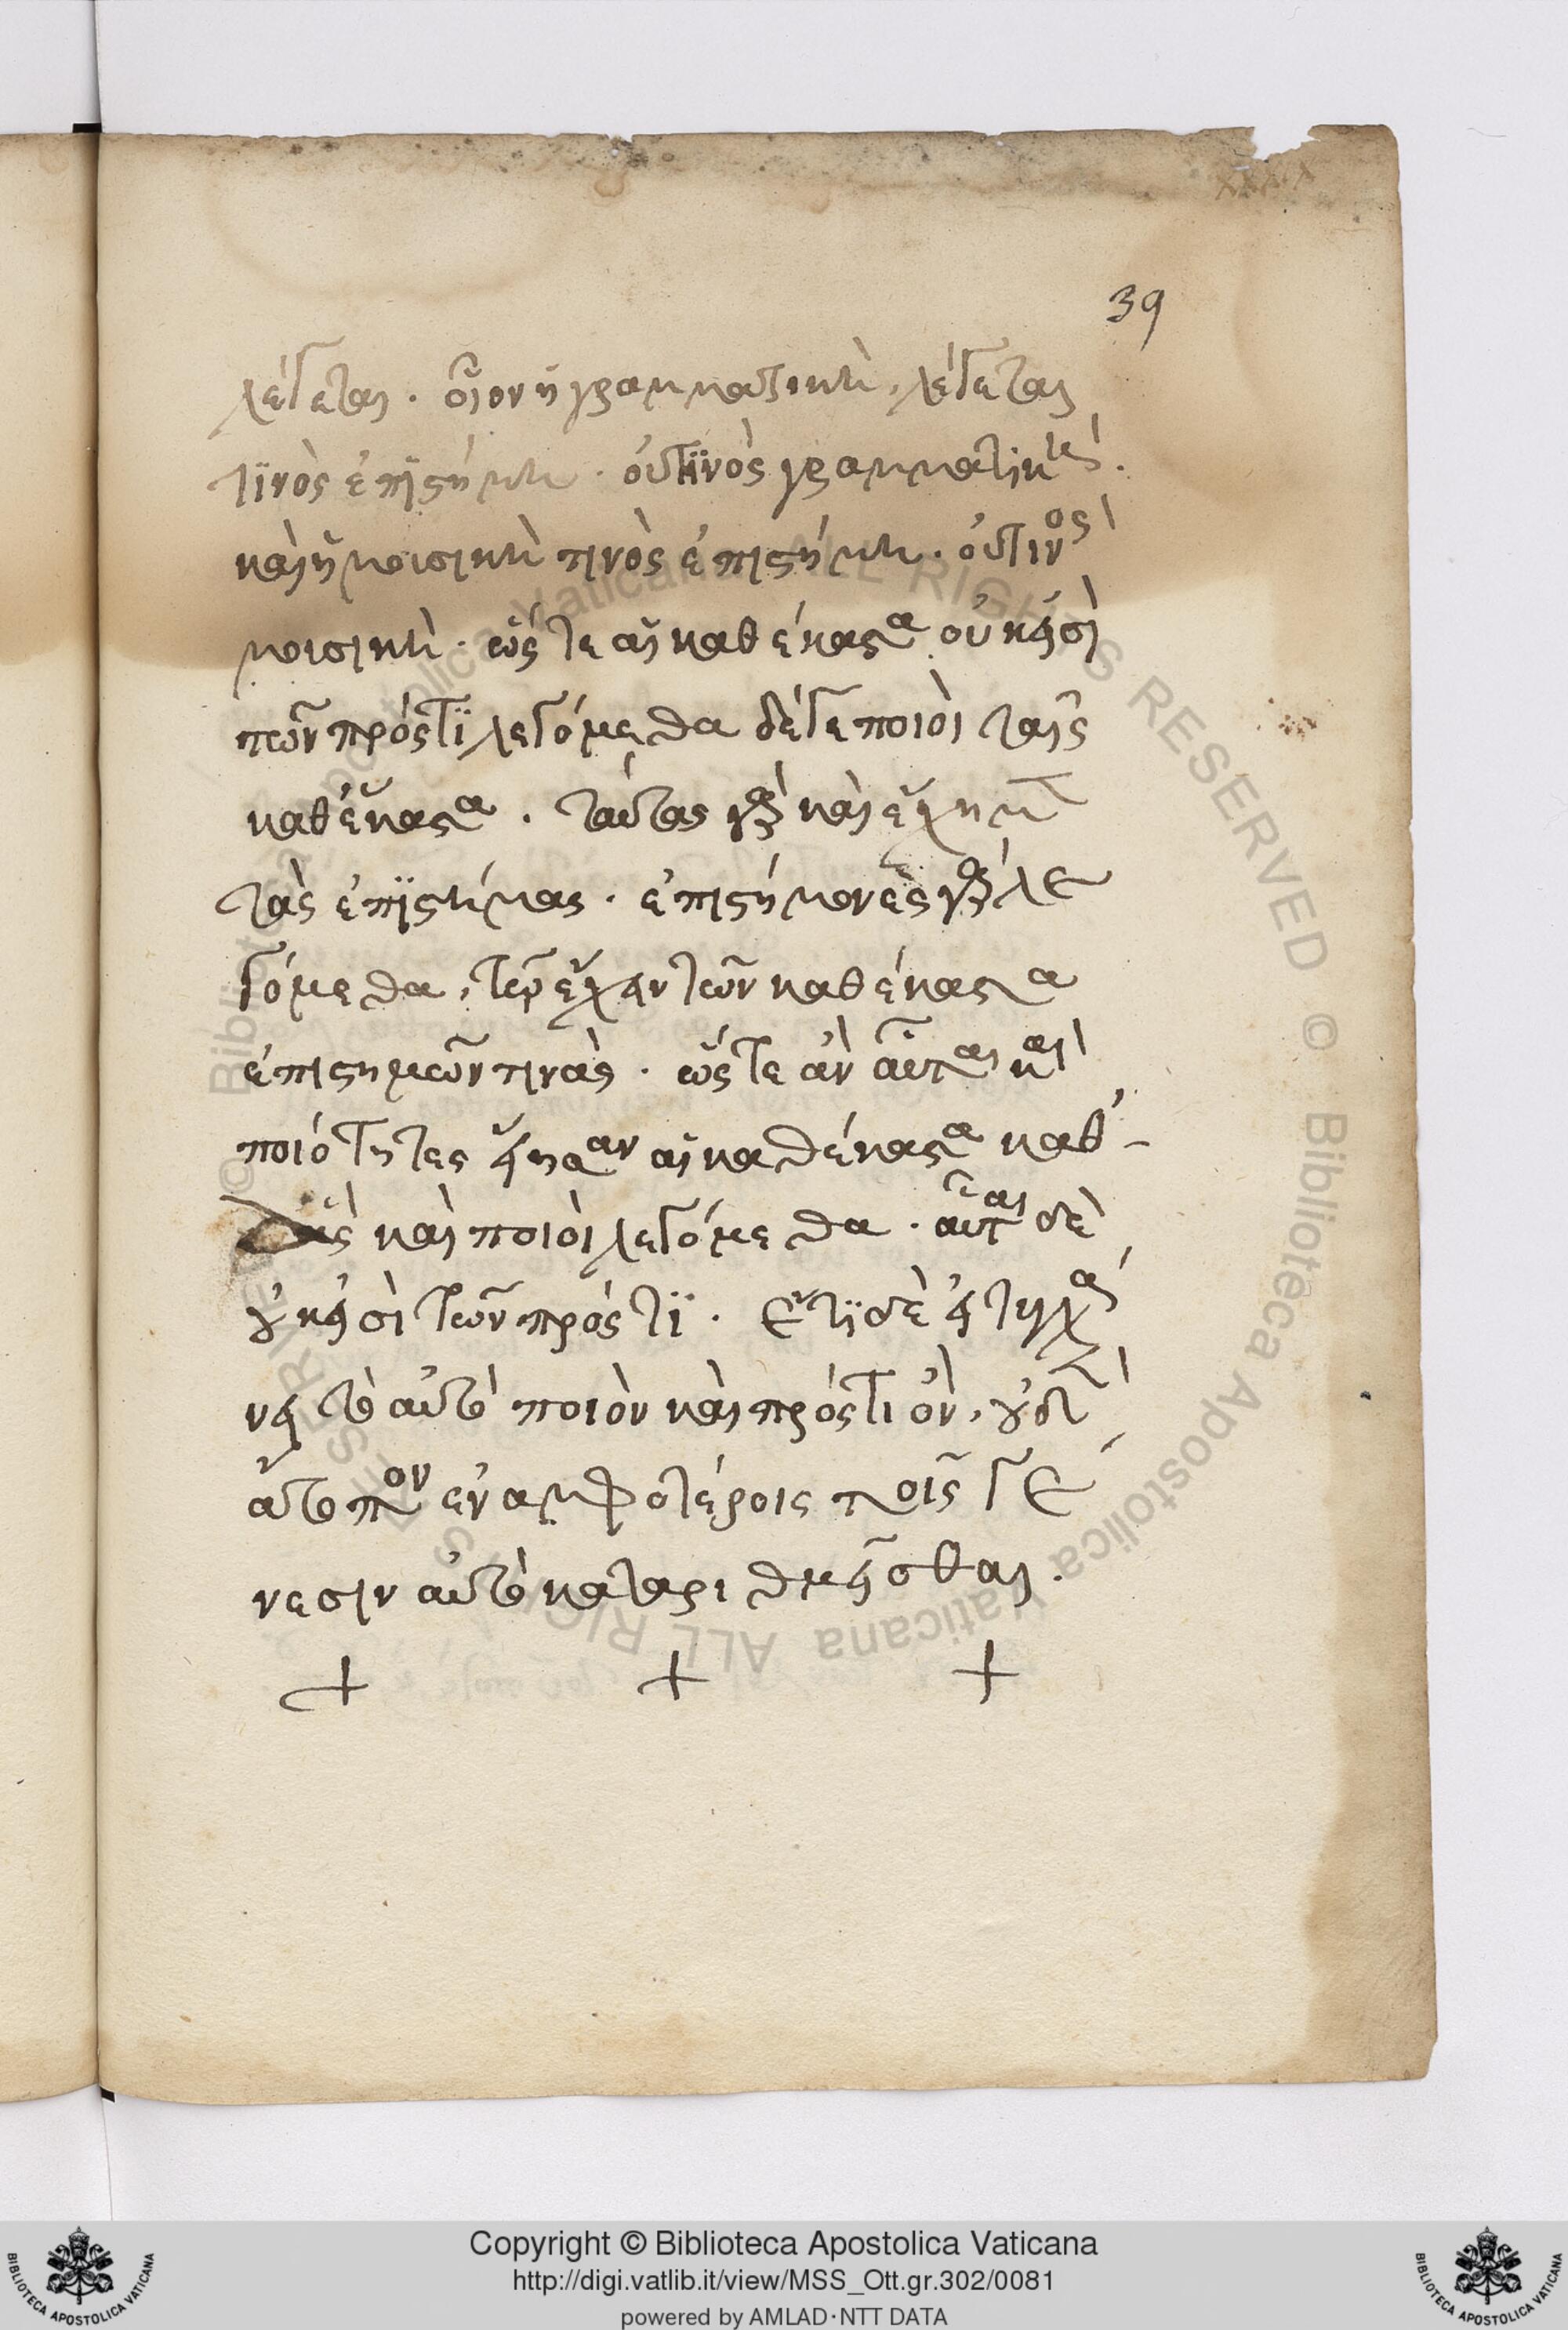 39
λέγεται. οἷον ἡ γραμματικὴ, λέγεται
τινὸς ἐπιστήμη. οὐ τινὸς γραμματικὴ.
καὶ ἡ μουσικὴ τινὸς ἐπιστήμη. οὐ τινὸς
μουσικὴ. ὥστε αἱ καθ ἕκαστα οὐκ εἰσὶ
τῶν πρός τι λεγόμεθα δέ γε ποιοὶ ταῖς
καθ ἕκαστα. ταύτας γὰρ καὶ ἔχομεν
τὰς ἐπιστήμας. ἐπιστήμονες γὰρ λε
γόμεθα, τῷ ἔχειν τῶν καθ ἕκαστα
ἐπιστημῶν τινὰς. ὥστε ἂν αὗται καὶ
ποιότητες εἴησαν αἱ καθ ἕκαστα καθ
ἃς καὶ ποιοὶ λεγόμεθα. αὗται δὲ
οὐκ εἰσὶ τῶν πρός τι. ἔτι δὲ εἰ τυγχά
νει τὸ αὐτὸ ποιὸν καὶ πρός τι ὂν, οὐδὲν
ἄτοπον ἐν ἀμφοτέροις τοῖς γέ
νεσιν αὐτὸ καταριθμεῖσθαι.
+ + +
Copyright © Biblioteca Apostolica Vaticana
http://digi.vatlib.it/view/MSS_Ott.gr.302/0081
powered by AMLAD·NTT DATA